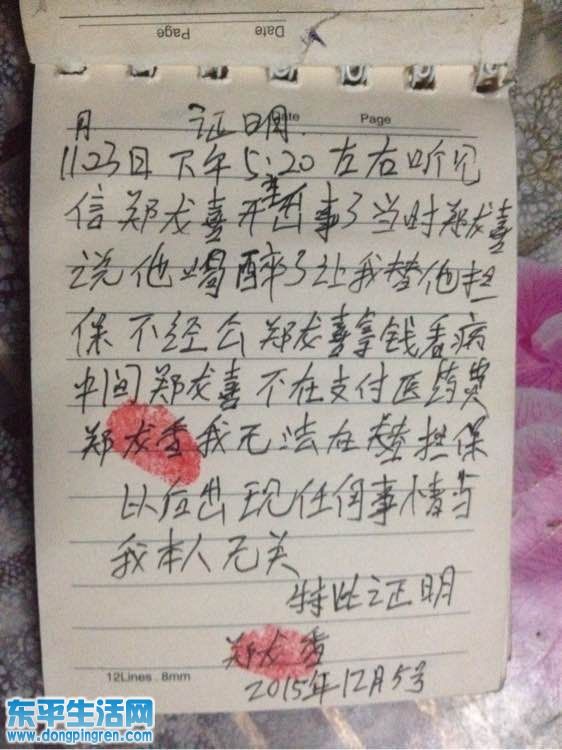 Date
Page
证明
Date
Page
月
1123日下午5:20左右听见
信郑龙喜开车出事了当时郑龙喜
说他喝醉了让我替他担
保不经公郑龙喜拿钱看病
中间郑龙喜不在支付医药费
郑龙香我无法在替担保
以后出现任何事情与
我本人无关
特此证明
郑龙香
2015年12月5号
12Lines . 8mm
东平生活网
www.dongpingren.com